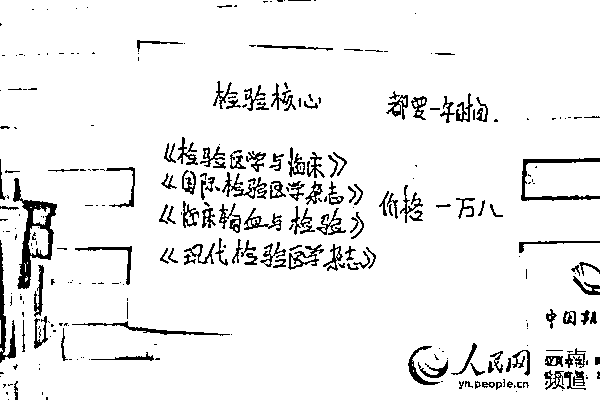 检验核心 都要一年时间.
《检验医学与临床》
《国际检验医学杂志》
《临床输血与检验》 价格 一万八
《现代检验医学杂志》
中国
人民网 云南
yn.people.cn 频道